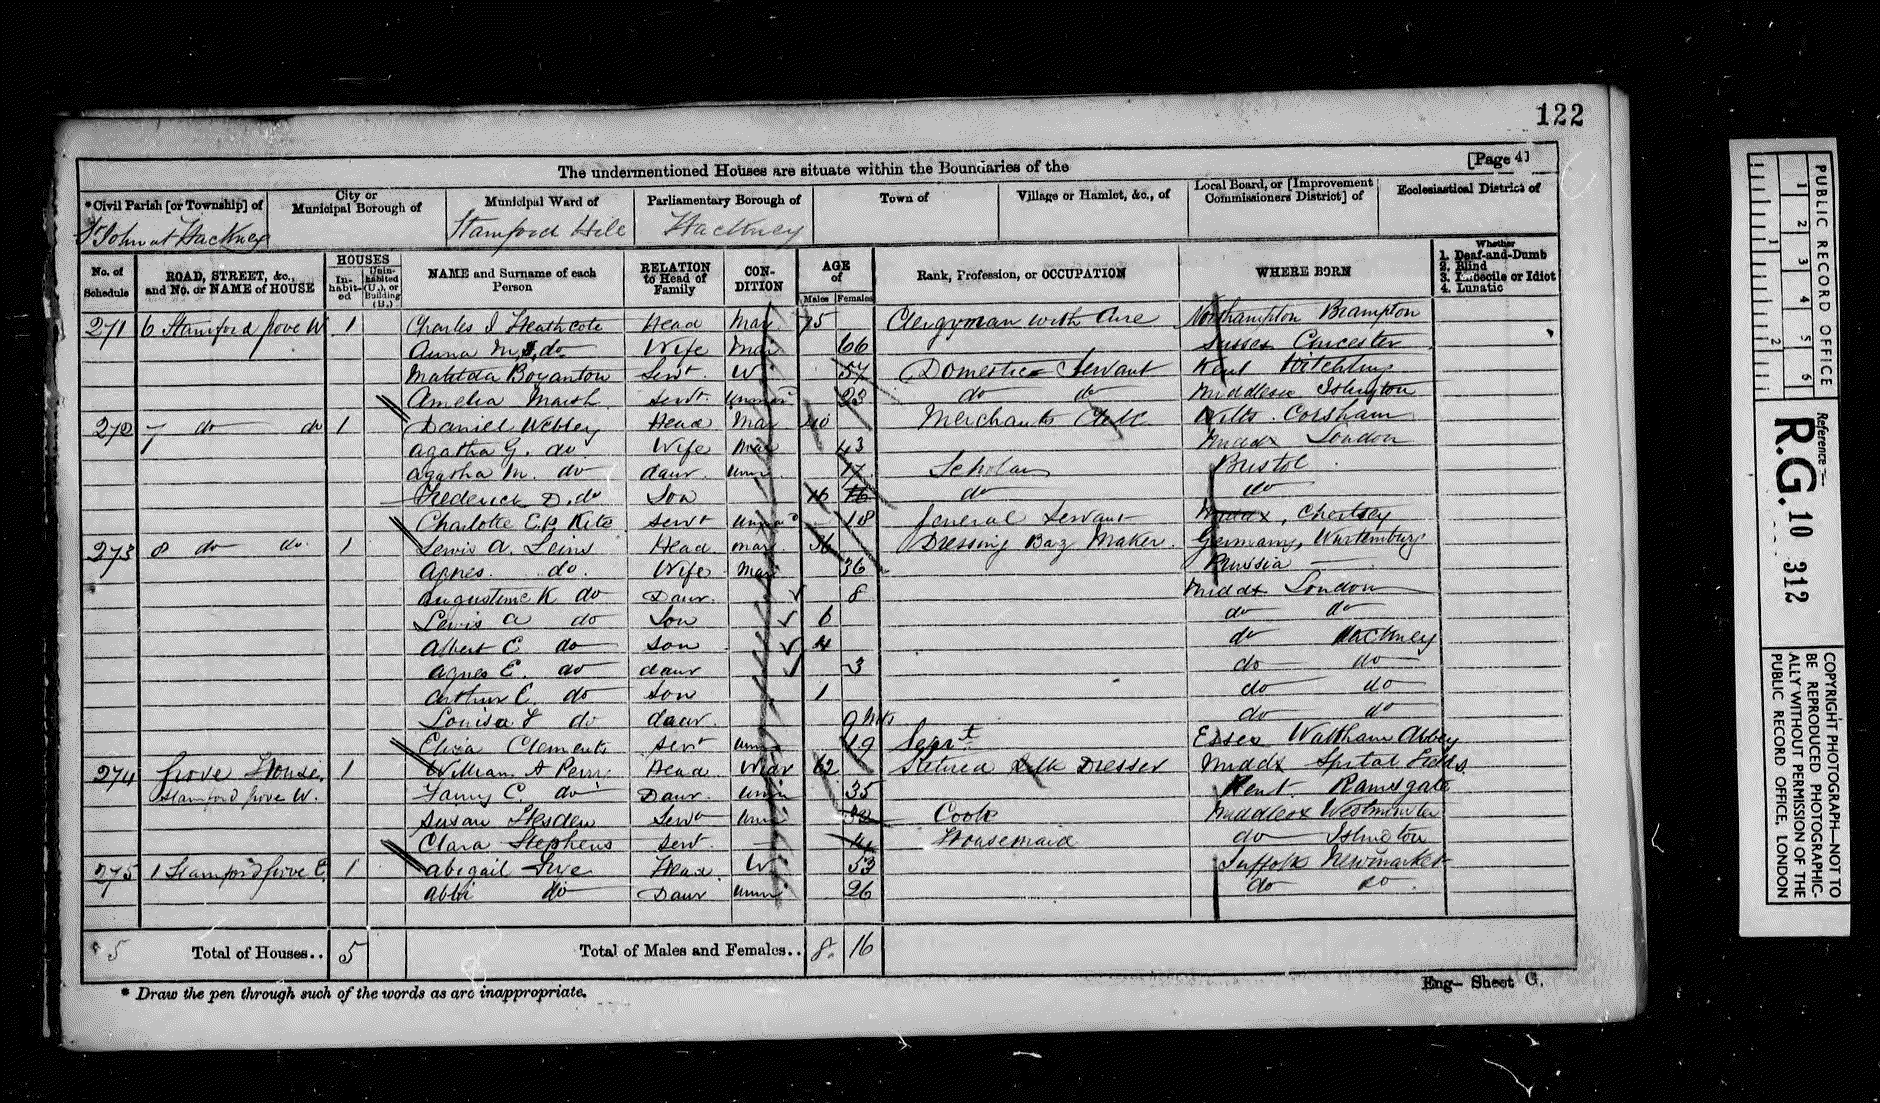 122
The undermentioned Houses are situate within the Boundaries of the [Page 41
*Civil Parish [or Township] of
City or Municipal Borough of
Municipal Ward of
Parliamentary Borough of
Town of
Village or Hamlet, &c., of
Local Board, or [Improvement Commissioners District] of
Ecclesiastical District of
St John at Hackney Stamford Hill Hackney
No. of Schedule
ROAD, STREET, &c., and No. or NAME of HOUSE
HOUSES
In-habit-ed
Unin-habited (U.), or Building (B.)
NAME and Surname of each Person
RELATION to Head of Family
CON-DITION
AGE of
Males Females
Rank, Profession, or OCCUPATION
WHERE BORN
Whether
1. Deaf-and-Dumb
2. Blind
3. Imbecile or Idiot
4. Lunatic
271 6 Stamford Grove W 1 Charles J Heathcote Head Mar 75 Clergyman with Cure Northampton Brampton
Anna M. S. do Wife Mar 66 Sussex Chicester
Matilda Boyanton Servt W 57 Domestic Servant Kent
Amelia Marsh Servt Unmar 23 do do Middlesex Islington
272 7 do do 1 Daniel Webley Head Mar 40 Merchants Clerk Wilts Corsham
Agatha G. do Wife Mar 43 Middx London
Agatha M. do daur. Unm 17 Scholar Bristol
Frederick D. do Son 16 16 do do
Charlotte E. Kite Servt Unmar 18 General Servant Middx, Chertsey
273 8 do do 1 Lewis A. Leins Head Mar 36 Dressing Bag Maker Germany, Wurtemburg
Agnes do Wife Mar 36 Russia
Augustine K do Daur. 8 Middx London
Lewis A do Son 6 do do
Albert E do Son 4 do Hackney
Agnes E. do daur 3 do do
Arthur C. do Son 1 do do
Louisa do daur. 9 Mts do do
Eliza Clements Servt Unm 19 Servt Essex Waltham Abbey
274 Grove House, Stamford Grove W. 1 William A Perry Head Widr 62 Retired Silk Dresser Middx Spital Fields
Fanny C do Daur. Unm 35 Kent Ramsgate
Susan Servt Unm 32 Cook Middlesex Westminster
Clara Stephens Servt Housemaid do Islington
275 1 Stamford Grove E. 1 Abigail Head W 53 Suffolk Newmarket
do Daur Unm 26 do do
5 Total of Houses.. 5 Total of Males and Females.. 8 16
* Draw the pen through such of the words as are inappropriate.
Eng- Sheet G.
PUBLIC RECORD OFFICE
1 2 3 4 5 6
1 2
Reference :-
R.G. 10 312
COPYRIGHT PHOTOGRAPH—NOT TO BE REPRODUCED PHOTOGRAPHIC-ALLY WITHOUT PERMISSION OF THE PUBLIC RECORD OFFICE, LONDON